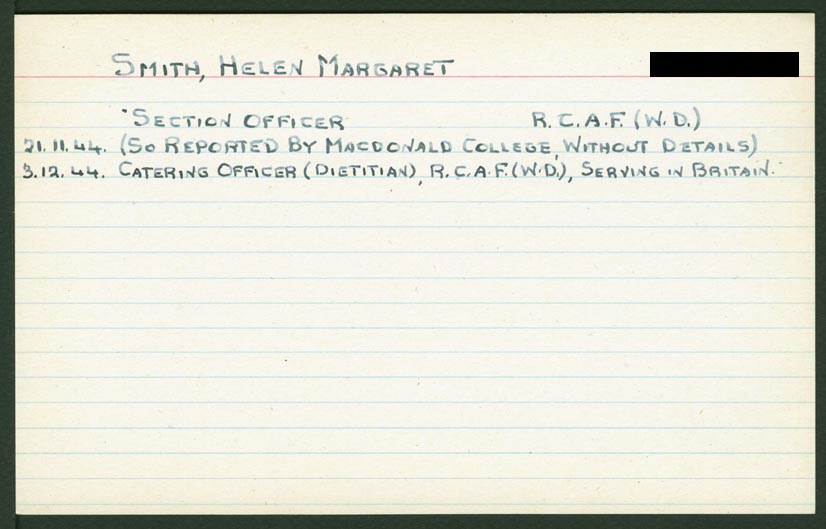 SMITH, HELEN MARGARET
SECTION OFFICER R.C.A.F. (W.D.)
21.11.44. (SO REPORTED BY MACDONALD COLLEGE, WITHOUT DETAILS)
3.12.44. CATERING OFFICER (DIETITIAN), R.C.A.F. (W.D.), SERVING IN BRITAIN.